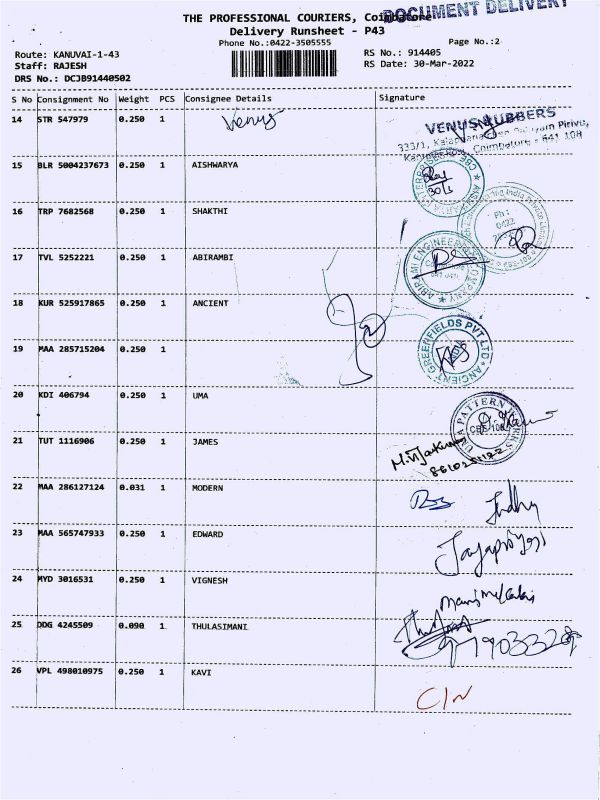 DOCUMENT DELIVERY
THE PROFESSIONAL COURIERS, Coimbatore
Delivery Runsheet - P43
Phone No.:0422-3505555
Page No.:2
Route: KANUVAI-1-43
RS No.: 914405
Staff: RAJESH
RS Date: 30-Mar-2022
DRS No.: DCJB91440502
S No Consignment No Weight PCS Consignee Details Signature
14 STR 547979 0.250 1 Venus
VENUS RUBBERS
333/1,
Coimbatore - 641 108
15 BLR 5004237673 0.250 1 AISHWARYA
16 TRP 7682568 0.250 1 SHAKTHI
Ph :
0422
17 TVL 5252221 0.250 1 ABIRAMBI
ABIRAMI ENGINEERING COMPANY
18 KUR 525917865 0.250 1 ANCIENT
ANCIENT GREENFIELDS PVT LTD
19 MAA 285715204 0.250 1
20 KDI 406794 0.250 1 UMA
UMA PATTERN WORKS
CBE-108
21 TUT 1116906 0.250 1 JAMES
22 MAA 286127124 0.031 1 MODERN
23 MAA 565747933 0.250 1 EDWARD
24 MYD 3016531 0.250 1 VIGNESH
25 DDG 4245509 0.090 1 THULASIMANI
26 VPL 498010975 0.250 1 KAVI